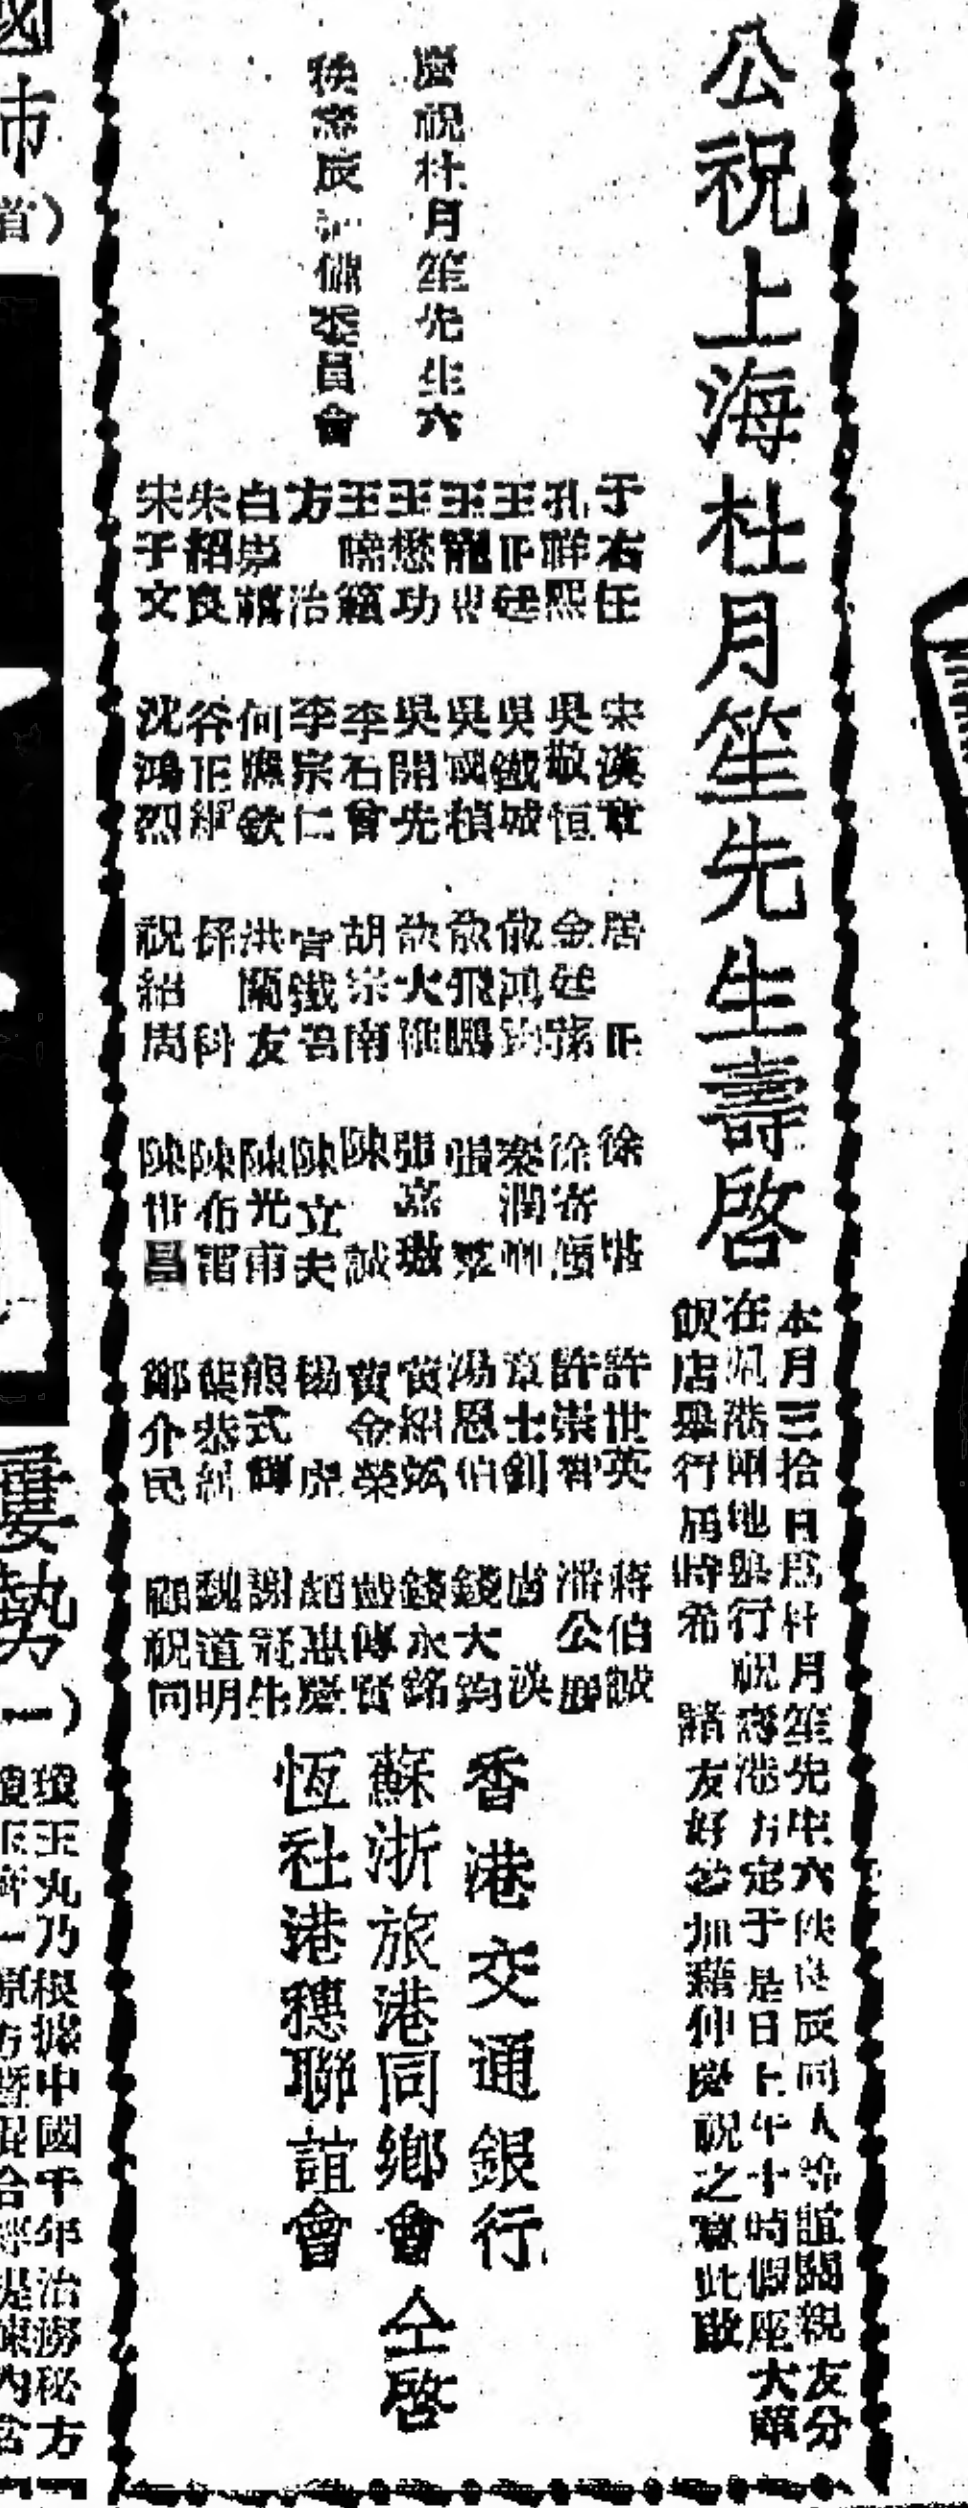 公祝上海杜月笙先生壽啓
本月三拾日為杜月笙先生六秩良辰同人等誼關親友分
在滬港兩地舉行祝壽港方定于是日上午十時假座大華
飯店舉行屆時希 諸友好參加藉伸慶祝之意此啟
慶祝杜月笙先生六
秩壽辰 備委員會
于右任
孔祥熙
王正廷
王寵惠
王懋功
王曉籟
方 治
白崇禧
朱紹良
宋子文
宋漢章
吳敬恒
吳鐵城
吳國楨
吳開先
李石曾
李宗仁
何應欽
谷正綱
沈鴻烈
居 正
金廷蓀
俞鴻鈞
俞飛鵬
俞大維
胡宗南
宣鐵吾
洪蘭友
孫 科
祝紹周
徐 堪
徐寄廎
秦潤卿
張 羣
張嘉璈
陳 誠
陳立夫
陳光甫
陳布雷
陳世昌
許世英
許崇智
章士釗
湯恩伯
黃紹竑
黃金榮
楊 虎
熊式輝
葉恭綽
鄭介民
蔣伯誠
潘公展
盧 漢
錢大鈞
錢永銘
戴傳賢
顏惠慶
謝冠生
魏道明
顧祝同
香港交通銀行
蘇浙旅港同鄉會 仝啓
恆社港穗聯誼會
國市
首）
屢勢
（一）
瓊玉丸乃根據中國千年治癆秘方